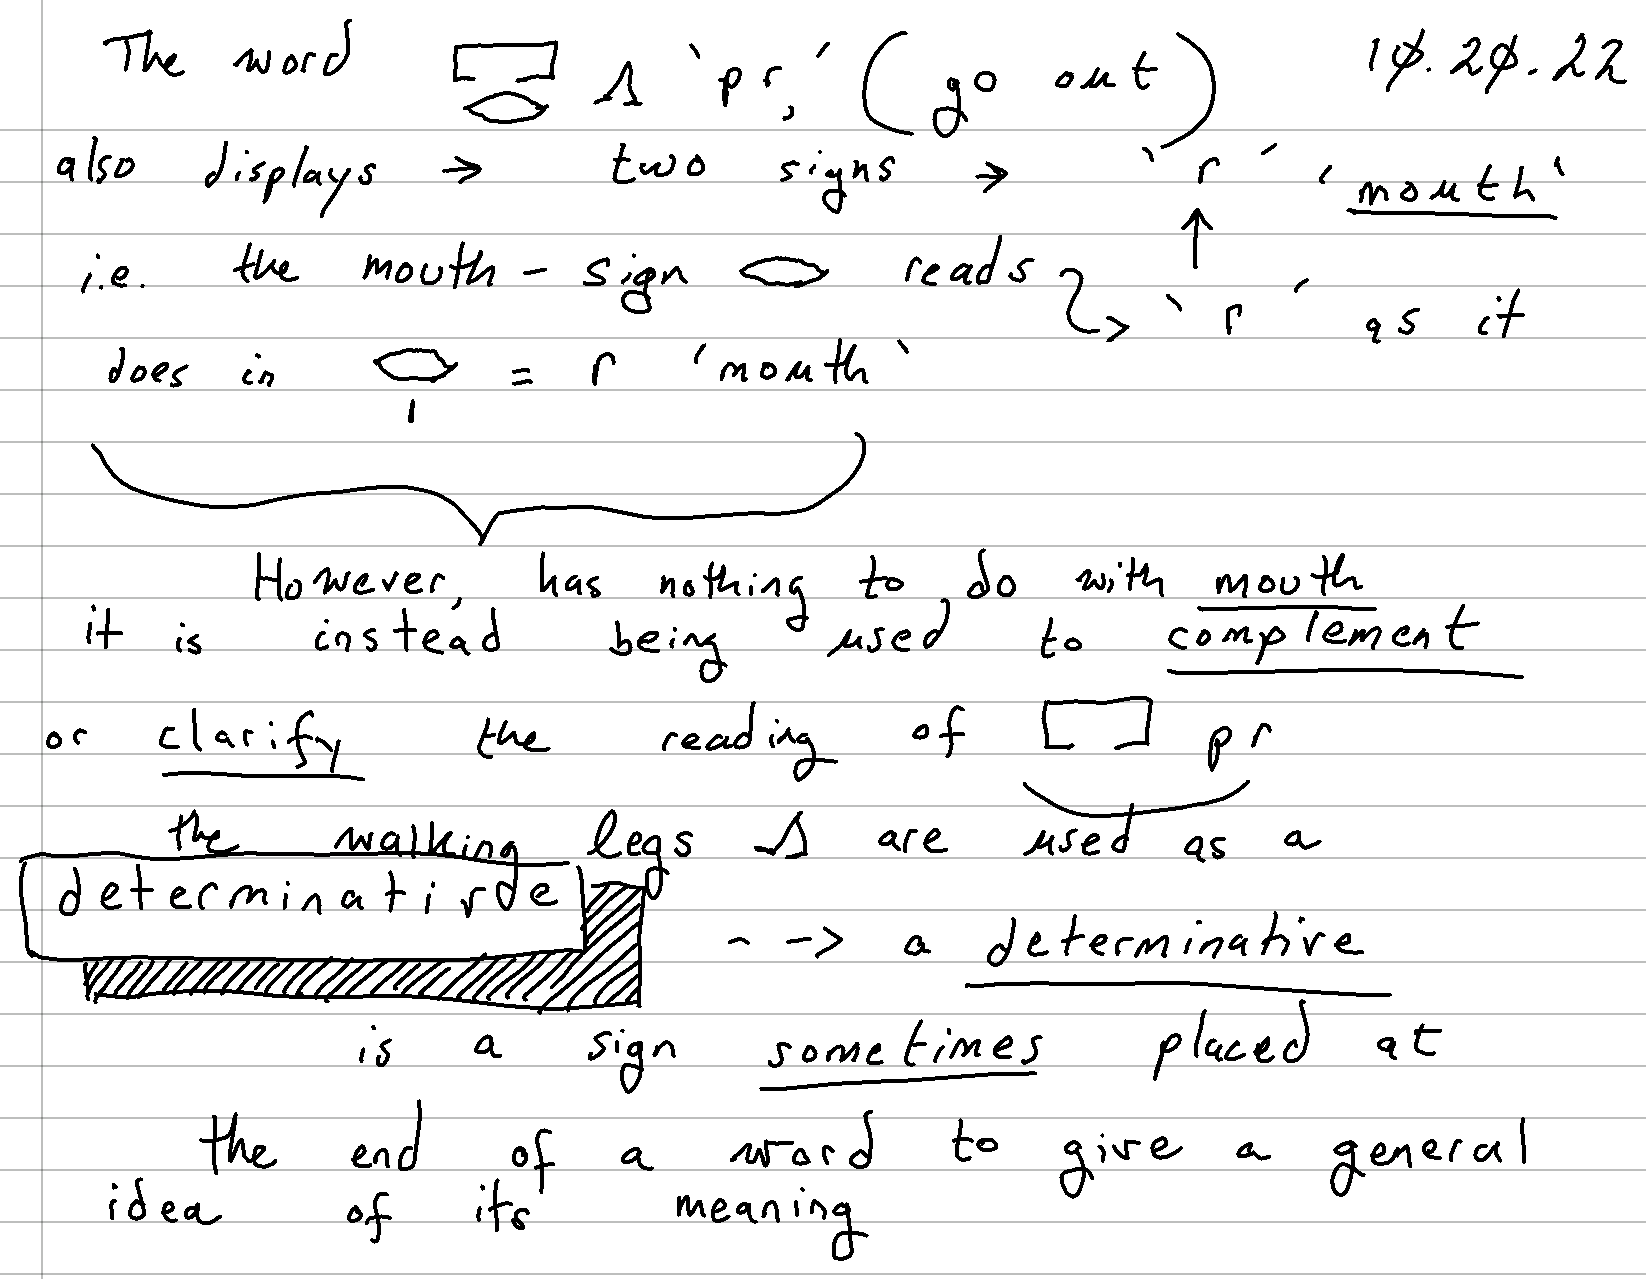 The word 𓉐𓂋 𓂻 'pr,' (go out) 10.20.22
also displays → two signs → 'r' 'mouth'
i.e. the mouth - sign 𓂋 reads → 'r' as it
does in 𓂋𓏤 = r 'mouth'
However, has nothing to do with mouth
it is instead being used to complement
or clarify the reading of 𓉐 pr
the walking legs 𓂻 are used as a
determinatirde
--> a determinative
is a sign sometimes placed at
the end of a word to give a general
idea of its meaning